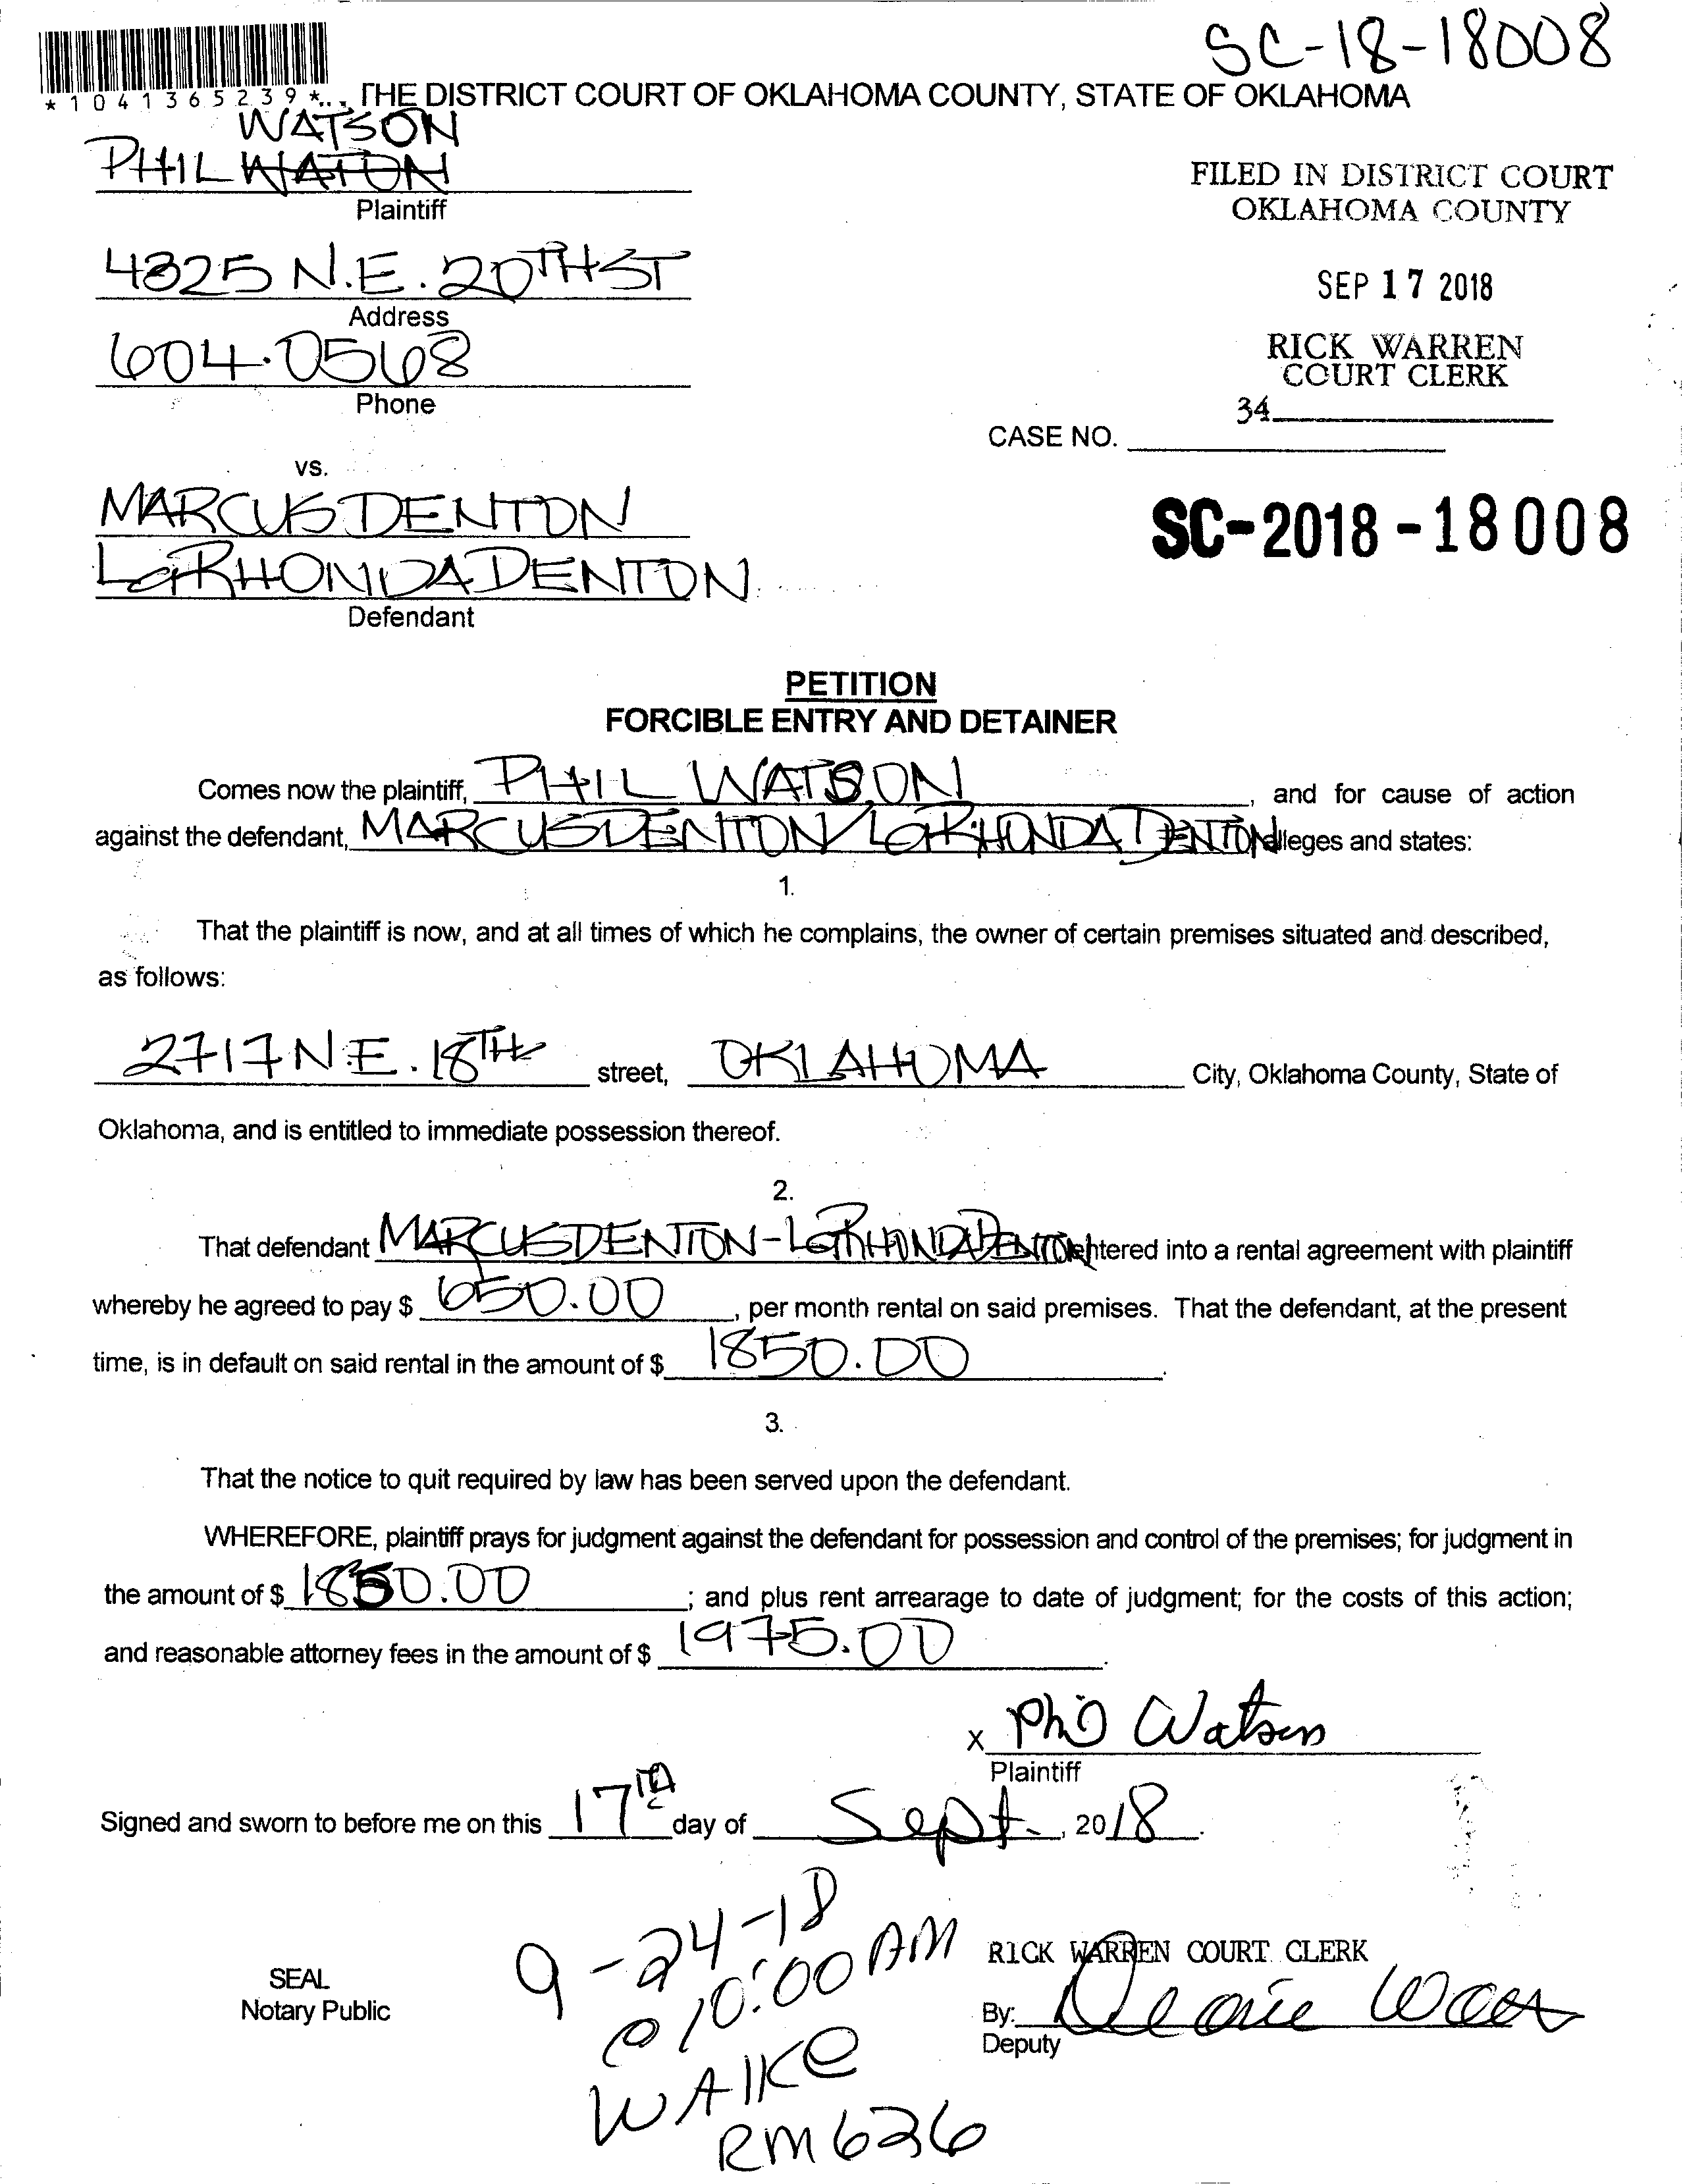 SC-18-18008
*1041365239*
THE DISTRICT COURT OF OKLAHOMA COUNTY, STATE OF OKLAHOMA
WATSON
PHIL WATON
Plaintiff
FILED IN DISTRICT COURT
OKLAHOMA COUNTY
4325 N.E. 20TH ST
Address
SEP 17 2018
604.0568
Phone
RICK WARREN
COURT CLERK
34
CASE NO.
vs.
MARCUS DENTON
LaRHONDA DENTON
Defendant
SC-2018-18008
PETITION
FORCIBLE ENTRY AND DETAINER
Comes now the plaintiff, PHIL WATSON, and for cause of action
against the defendant, MARCUS DENTON/LaRHONDA DENTON alleges and states:
1.
That the plaintiff is now, and at all times of which he complains, the owner of certain premises situated and described,
as follows:
2717 N.E. 18TH street, OKLAHOMA City, Oklahoma County, State of
Oklahoma, and is entitled to immediate possession thereof.
2.
That defendant MARCUS DENTON-LaRHONDA DENTON entered into a rental agreement with plaintiff
whereby he agreed to pay $ 650.00, per month rental on said premises. That the defendant, at the present
time, is in default on said rental in the amount of $ 1850.00.
3.
That the notice to quit required by law has been served upon the defendant.
WHEREFORE, plaintiff prays for judgment against the defendant for possession and control of the premises; for judgment in
the amount of $ 1850.00; and plus rent arrearage to date of judgment; for the costs of this action;
and reasonable attorney fees in the amount of $ 1975.00.
x Phil Watson
Plaintiff
Signed and sworn to before me on this 17th day of Sept., 2018.
9-24-18
@ 10:00 AM
WAlKe
RM 626
SEAL
Notary Public
RICK WARREN COURT CLERK
By:
Deputy